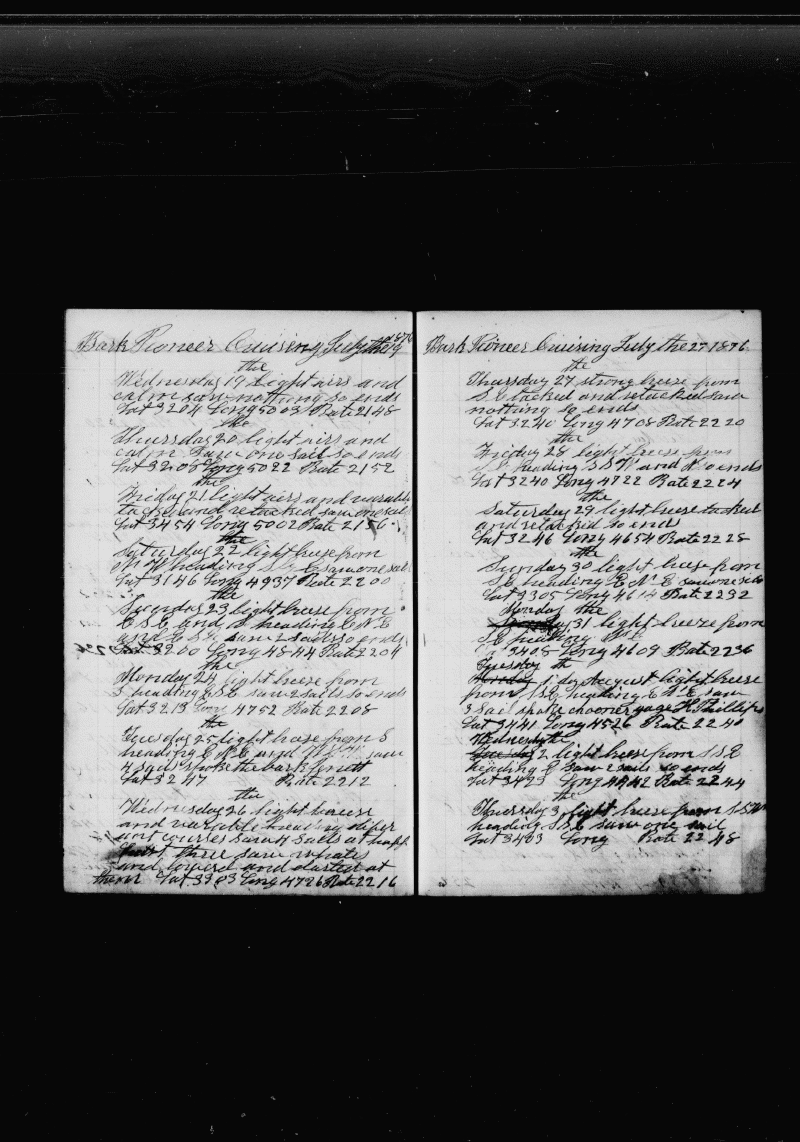 Bark Pioneer Cruising July the 19 1876
the
Wednesday 19 light airs and
calm saw nothing so ends
Lat 3204 Long 5003 Rate 2148
the
Thursday 20 light airs and
calm saw one sail so ends
Lat 3208 Long 5022 Rate 2152
the
Friday 21 light airs and varable
tacked and retacked saw one sail
Lat 3454 Long 5002 Rate 2156
the
Saturday 22 light breese from
heading saw one sail
Lat 3146 Long 4937 Rate 2200
the
Sunday 23 light breese from
E S E and S heading E N E
and saw 2 sails so ends
Lat 3200 Long 4844 Rate 2204
the
Monday 24 light breeze from
S heading E S E saw 2 sails so ends
Lat 3213 Long 4752 Rate 2208
the
Tuesday 25 light breese from S
heading E N E and saw
4 sails spoke the bark
Lat 3247 Rate 2212
the
Wednesday 26 light breese
and varable heading difer
ant courses saw 4 sails at half
past three saw whales
and lowerd and started at
them Lat 3383 Long 4726 Rate 2216
Bark Pioneer Cruising July the 27 1876
the
Thursday 27 strong breese from
S E tacked and retacked saw
nothing so ends
Lat 3240 Long 4708 Rate 2220
the
Friday 28 light breese from
heading S S W and so ends
Lat 3240 Long 4722 Rate 2224
the
Saturday 29 light breese tacked
and retacked so ends
Lat 3246 Long 4654 Rate 2228
the
Sunday 30 light breese from
S E heading E N E saw one sail
Lat 3305 Long 4614 Rate 2232
Monday the
31 light breeze from
S E heading
3408 Long 4609 Rate 2236
Tuesday the
Monday 1 day August light breese
from S S E heading E N E saw
3 sail spoke chooner yage H Phillips
Lat 3441 Long 4526 Rate 2240
Wednesday the
Tuesday 2 light breese from S S E
heading E saw 2 sails so ends
Lat 3423 Long 4442 Rate 2244
the
Thursday 3 light breese from S S W
heading S S E saw one sail
Lat 3403 Long Rate 2248